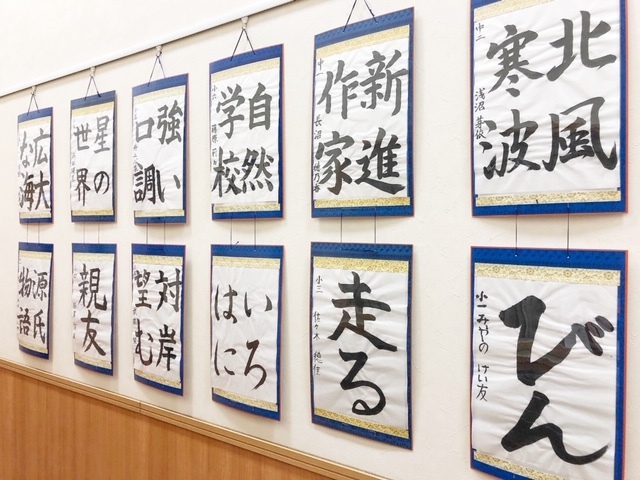 北風
寒波
中二
浅沼
新進
作家
中一
長沼 穂乃香
自然
学校
強い
口調
星の
世界
広大
な海
びん
小一 みやの けい友
走る
小三 佐々木
いろ
はに
対岸
望む
親友
源氏
物語